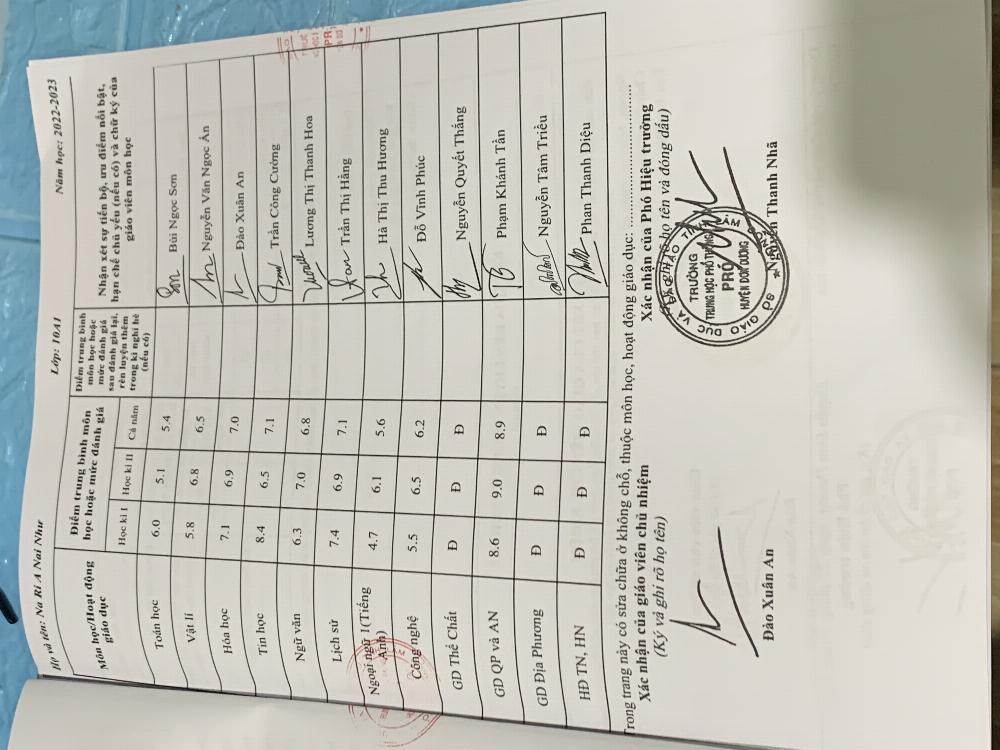 Họ và tên: Na Ri A Nai Như Lớp: 10A1 Năm học: 2022-2023
Môn học/Hoạt động giáo dục
Điểm trung bình môn học hoặc mức đánh giá
Học kì I Học kì II Cả năm
Điểm trung bình môn học hoặc mức đánh giá sau đánh giá lại, rèn luyện thêm trong kì nghỉ hè (nếu có)
Nhận xét sự tiến bộ, ưu điểm nổi bật, hạn chế chủ yếu (nếu có) và chữ ký của giáo viên môn học
Toán học 6.0 5.1 5.4 Bùi Ngọc Sơn
Vật lí 5.8 6.8 6.5 Nguyễn Văn Ngọc Ấn
Hóa học 7.1 6.9 7.0 Đào Xuân An
Tin học 8.4 6.5 7.1 Trần Công Cường
Ngữ văn 6.3 7.0 6.8 Lương Thị Thanh Hoa
Lịch sử 7.4 6.9 7.1 Trần Thị Hằng
Ngoại ngữ 1(Tiếng Anh) 4.7 6.1 5.6 Hà Thị Thu Hương
Công nghệ 5.5 6.5 6.2 Đỗ Vĩnh Phúc
GD Thể Chất Đ Đ Đ Nguyễn Quyết Thắng
GD QP và AN 8.6 9.0 8.9 Phạm Khánh Tần
GD Địa Phương Đ Đ Đ Nguyễn Tâm Triều
HĐ TN, HN Đ Đ Đ Phan Thanh Diệu
Trong trang này có sửa chữa ở không chỗ, thuộc môn học, hoạt động giáo dục: ..............................
Xác nhận của giáo viên chủ nhiệm
(Ký và ghi rõ họ tên)
Đào Xuân An
Xác nhận của Phó Hiệu trưởng
họ tên và đóng dấu)
TRƯỜNG
TRUNG HỌC PHỔ THÔNG
PRÓ
HUYỆN ĐƠN DƯƠNG
Nguyễn Thanh Nhã